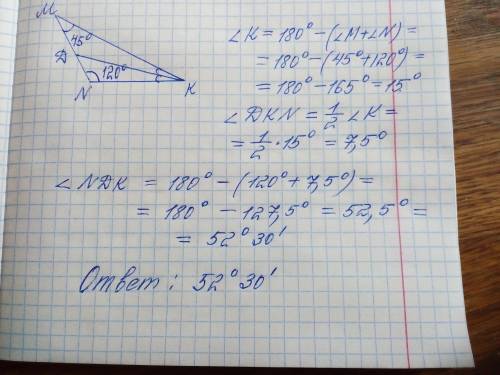 M
45°
D
120°
N
K
∠K = 180° - (∠M + ∠N) =
= 180° - (45° + 120°) =
= 180° - 165° = 15°
∠DKN = 1/2 ∠K =
= 1/2 · 15° = 7,5°
∠NDK = 180° - (120° + 7,5°) =
= 180° - 127,5° = 52,5° =
= 52° 30'
Ответ: 52° 30'